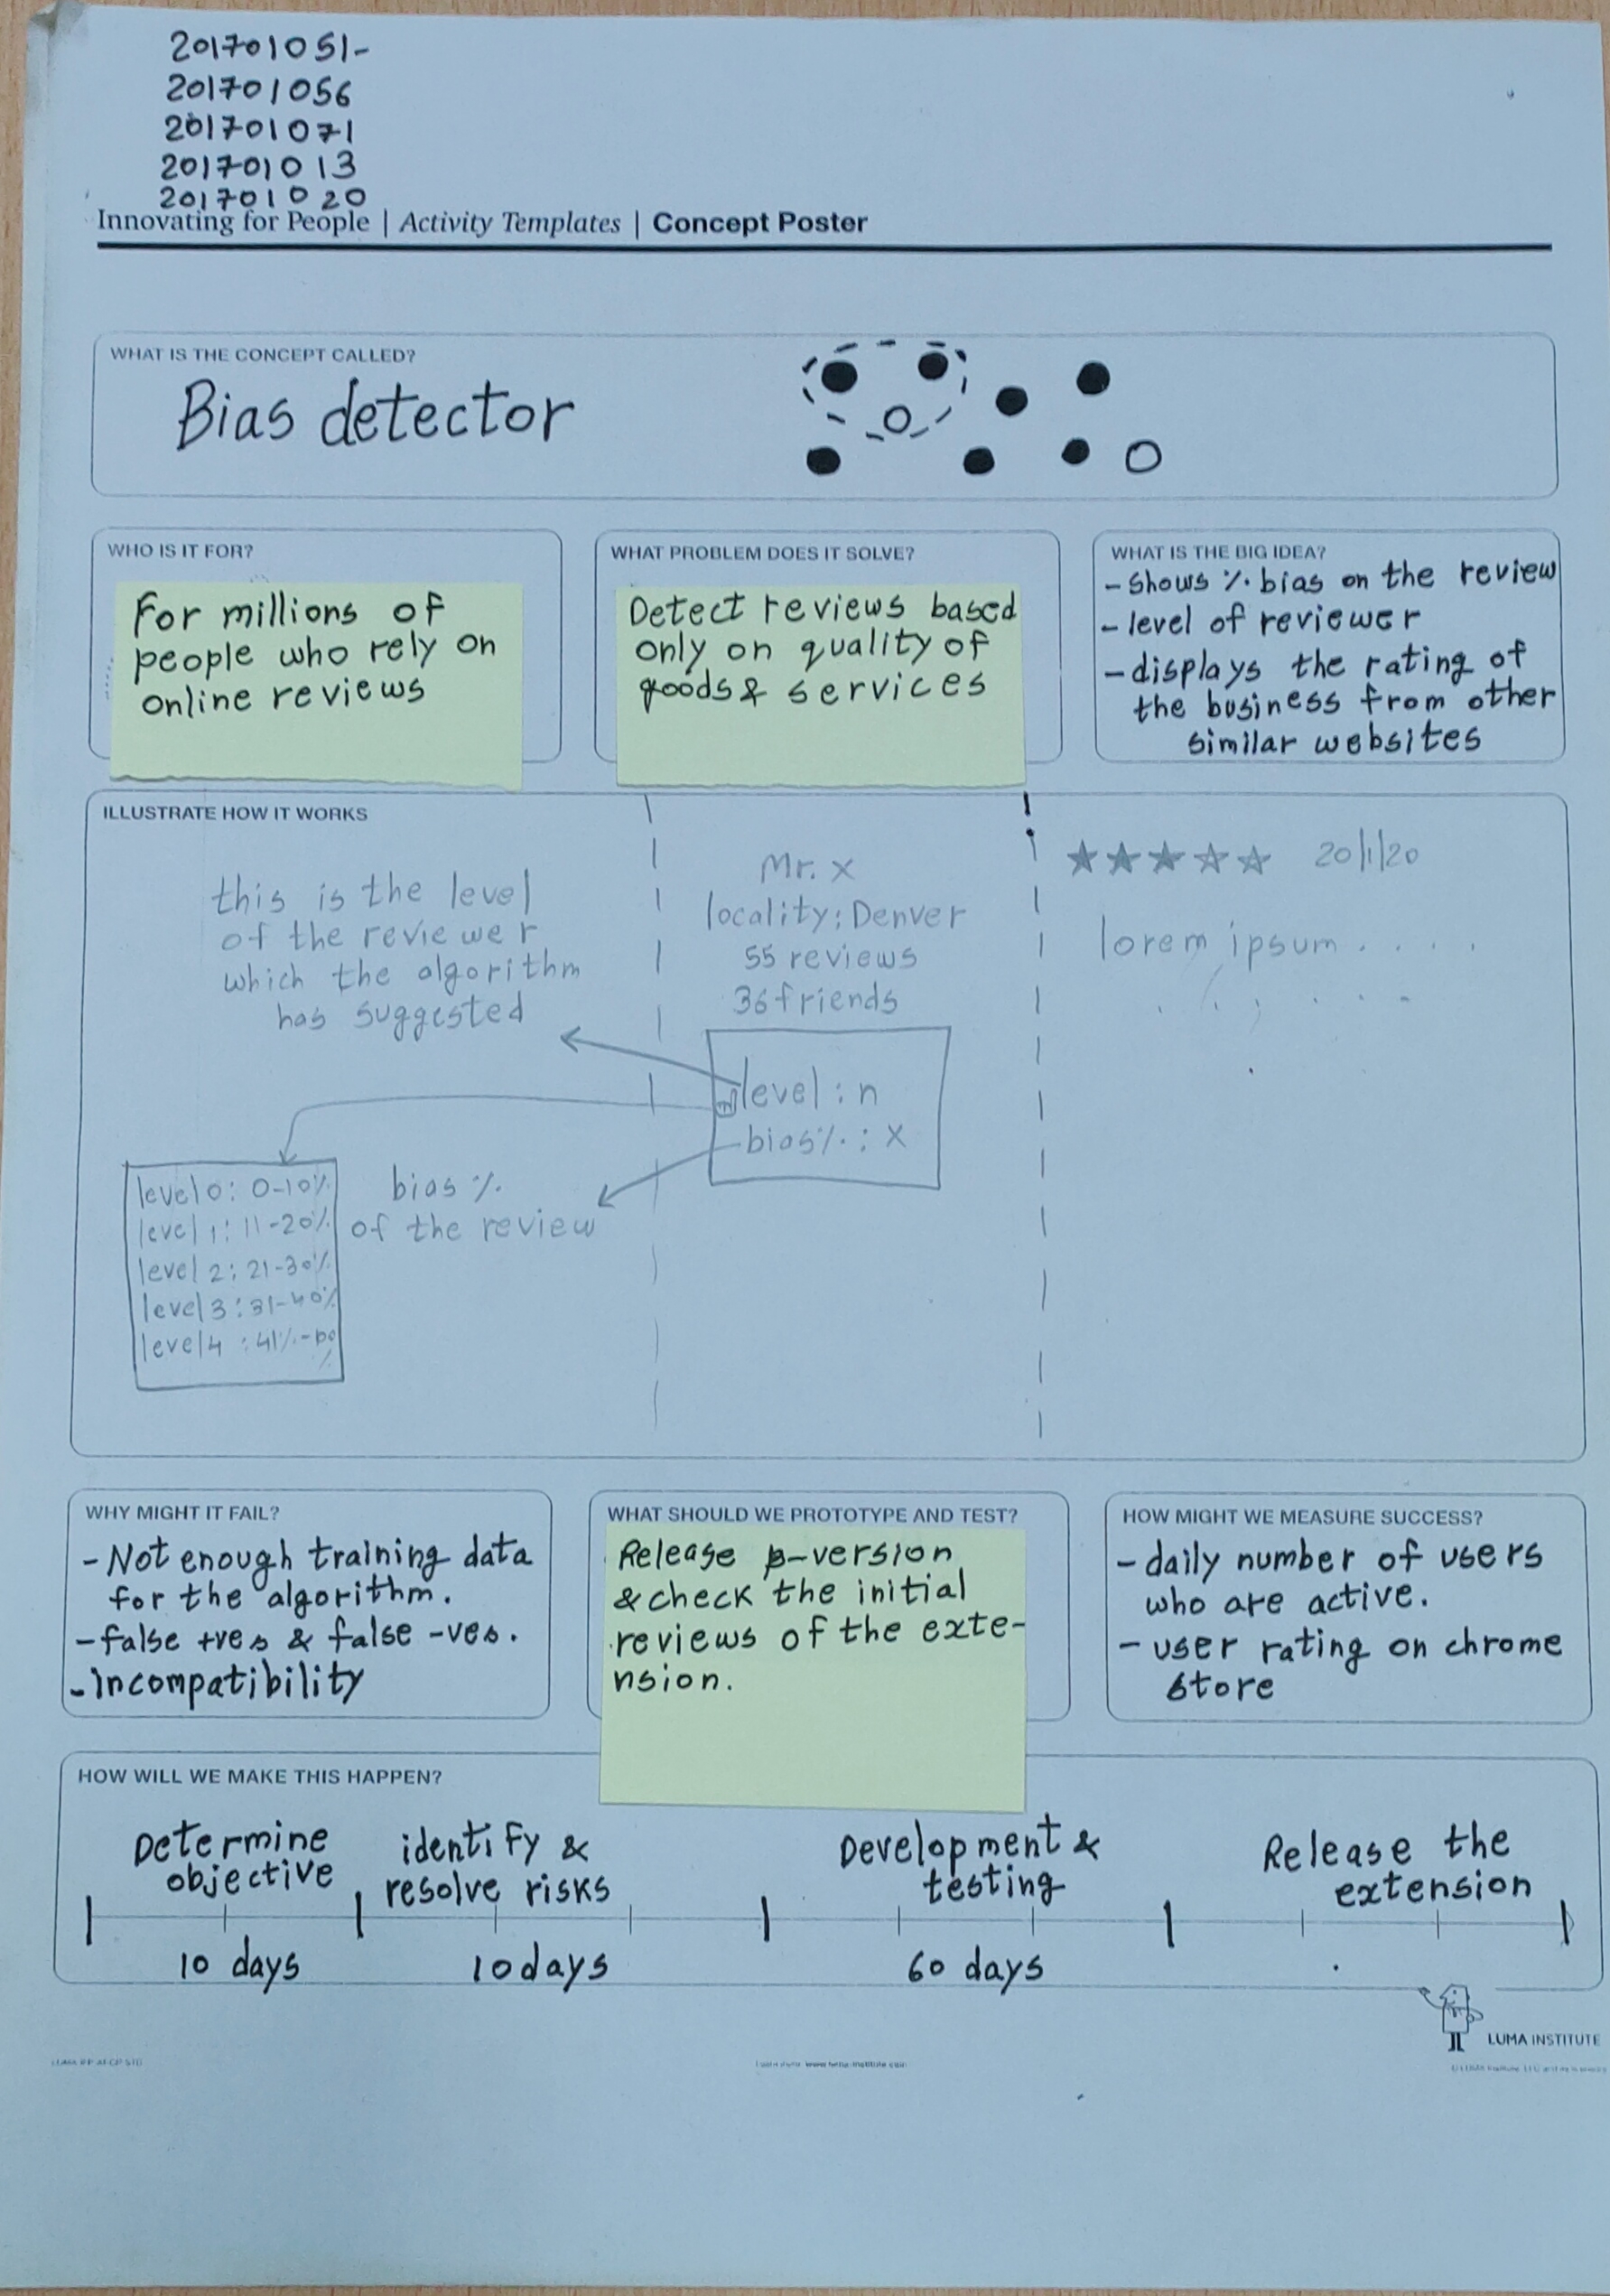 201701051-
201701056
201701071
201701013
201701020
Innovating for People | Activity Templates | Concept Poster
WHAT IS THE CONCEPT CALLED?
Bias detector
WHO IS IT FOR?
For millions of
people who rely on
online reviews
WHAT PROBLEM DOES IT SOLVE?
Detect reviews based
only on quality of
goods & services
WHAT IS THE BIG IDEA?
- shows % bias on the review
- level of reviewer
- displays the rating of
the business from other
similar websites
ILLUSTRATE HOW IT WORKS
this is the level
of the reviewer
which the algorithm
has suggested
level 0: 0-10%
level 1: 11-20%
level 2: 21-30%
level 3: 31-40%
level 4: 41%-
%
bias %
of the review
Mr. X
locality: Denver
55 reviews
36 friends
level : n
bias% : X
★★★★★ 20/1/20
lorem ipsum . . . .
WHY MIGHT IT FAIL?
- Not enough training data
for the algorithm.
- false +ves & false -ves.
- Incompatibility
WHAT SHOULD WE PROTOTYPE AND TEST?
Release β-version
& check the initial
reviews of the exte-
nsion.
HOW MIGHT WE MEASURE SUCCESS?
- daily number of users
who are active.
- user rating on chrome
store
HOW WILL WE MAKE THIS HAPPEN?
Determine
objective
10 days
identify &
resolve risks
10 days
Development &
testing
60 days
Release the
extension
LUMA INSTITUTE